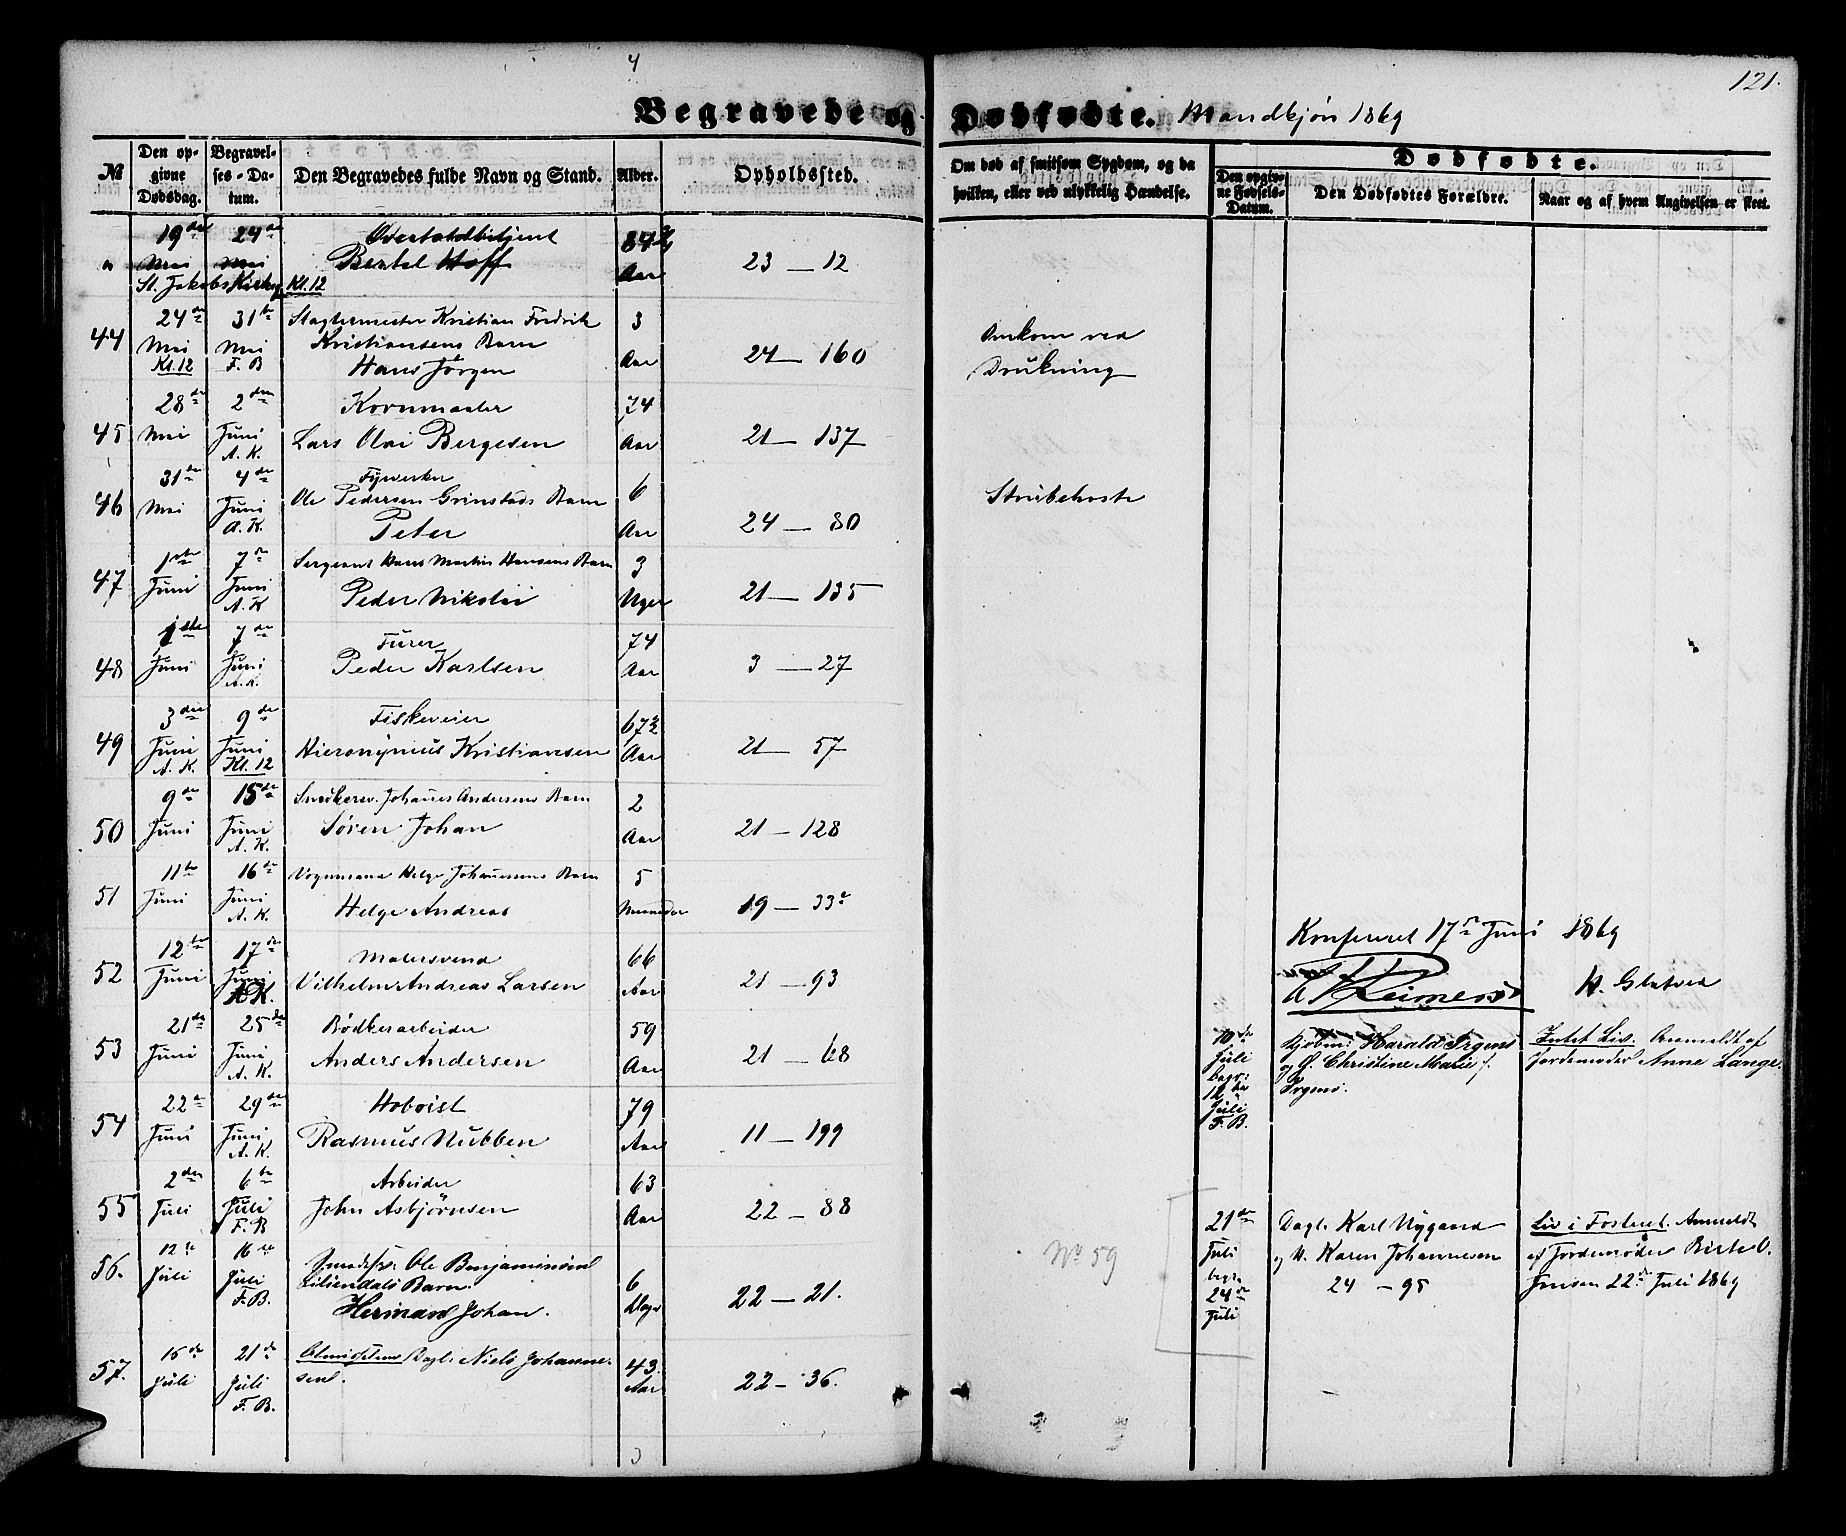 4
121.
Begravede og Dødfødte. Mandkjøn 1869
№
Den opgivne Dødsdag.
Begravelses-Datum.
Den Begravedes fulde Navn og Stand.
Alder.
Opholdssted.
Om død af smitsom Sygdom, og da hvilken, eller ved ulykkelig Hændelse.
Dødfødte.
Den opgivne Fødsels-Datum.
Den Dødfødtes Forældre.
Naar og af hvem Angivelsen er skeet.
" 19de Mai 24de Mai
Bertel Hoff
84½ Aar
23 — 12
St. Jakobs Kirkeg Kl. 12
44 24de Mai Kl. 12 31te Mai F. B
Slagtermester Kristian Fredrik
Kristiansens Barn
Hans Jörgen
3 Aar
24 — 160
Omkom ved
Drukning
45 28de Mai 2den Juni A. K.
Kornmaaler
Lars Olai Bergesen
74 Aar
21 — 137
46 31te Mai 4de Juni A. K.
Fyrverker
Ole Pedersen Grinstads Barn
Peter
6 Aar
24 — 80
Strubehoste
47 1ste Juni 7de Juni A. K
Sergeant Hans Martin Hansens Barn
Peder Nikolai
3 Uger
21 — 135
48 1ste Juni 7de Juni A. K.
Furer
Peder Karlsen
74 Aar
3 — 27
49 3die Juni A. K. 9de Juni Kl. 12
Fiskeveier
Hieronymus Kristiansen
67½ Aar
21 — 57
50 9de Juni 15de Juni A. K.
Snedkersv. Johanes Andersens Barn
Sören Johan
2 Aar
21 — 128
51 11te Juni 16de Juni A. K.
Vognmand Helge Johannesens Barn
Helge Andreas
5 Maaneder
19 — 33
52 12te Juni 17de Juni A. K.
Malersvend
Vilhelm Andreas Larsen
66 Aar
21 — 93
Konfereret 17de Juni 1869
Reimers
K. Glatved
53 21de Juni 25de Juni A. K.
Bödkerarbeider
Anders Andersen
59 Aar
21 — 68
10de Juli begr: 12te Juli F. B.
Kjøbm: Harald Irgens
og H. Christine Marie f.
Irgens.
Intet Liv. Anmeldt af
Jordemoder Anne Lange.
54 22de Juni 29de Juni A. K.
Hoboist
Rasmus Nubben
79 Aar
11 — 199
55 2den Juli 6te Juli F. B
Arbeider
John Asbjörnsen
63 Aar
22 — 88
21de Juli begr. 24de Juli
Dagl. Karl Nygaard
og H. Karen Johannesen
24 — 95
Liv i Fosteret. Anmeldt
af Jordemoder Birte O.
Jensen 22de Juli 1869
No 59
56. 12te Juli 16de Juli F. B.
Ole Benjaminsen
Liliendals Barn.
Herman Johan.
6 Dage
22 — 21.
57. 15de Juli 21de Juli F. B.
Almislem Dagl: Niels Johanne-
sen.
43. Aar
22 — 36.